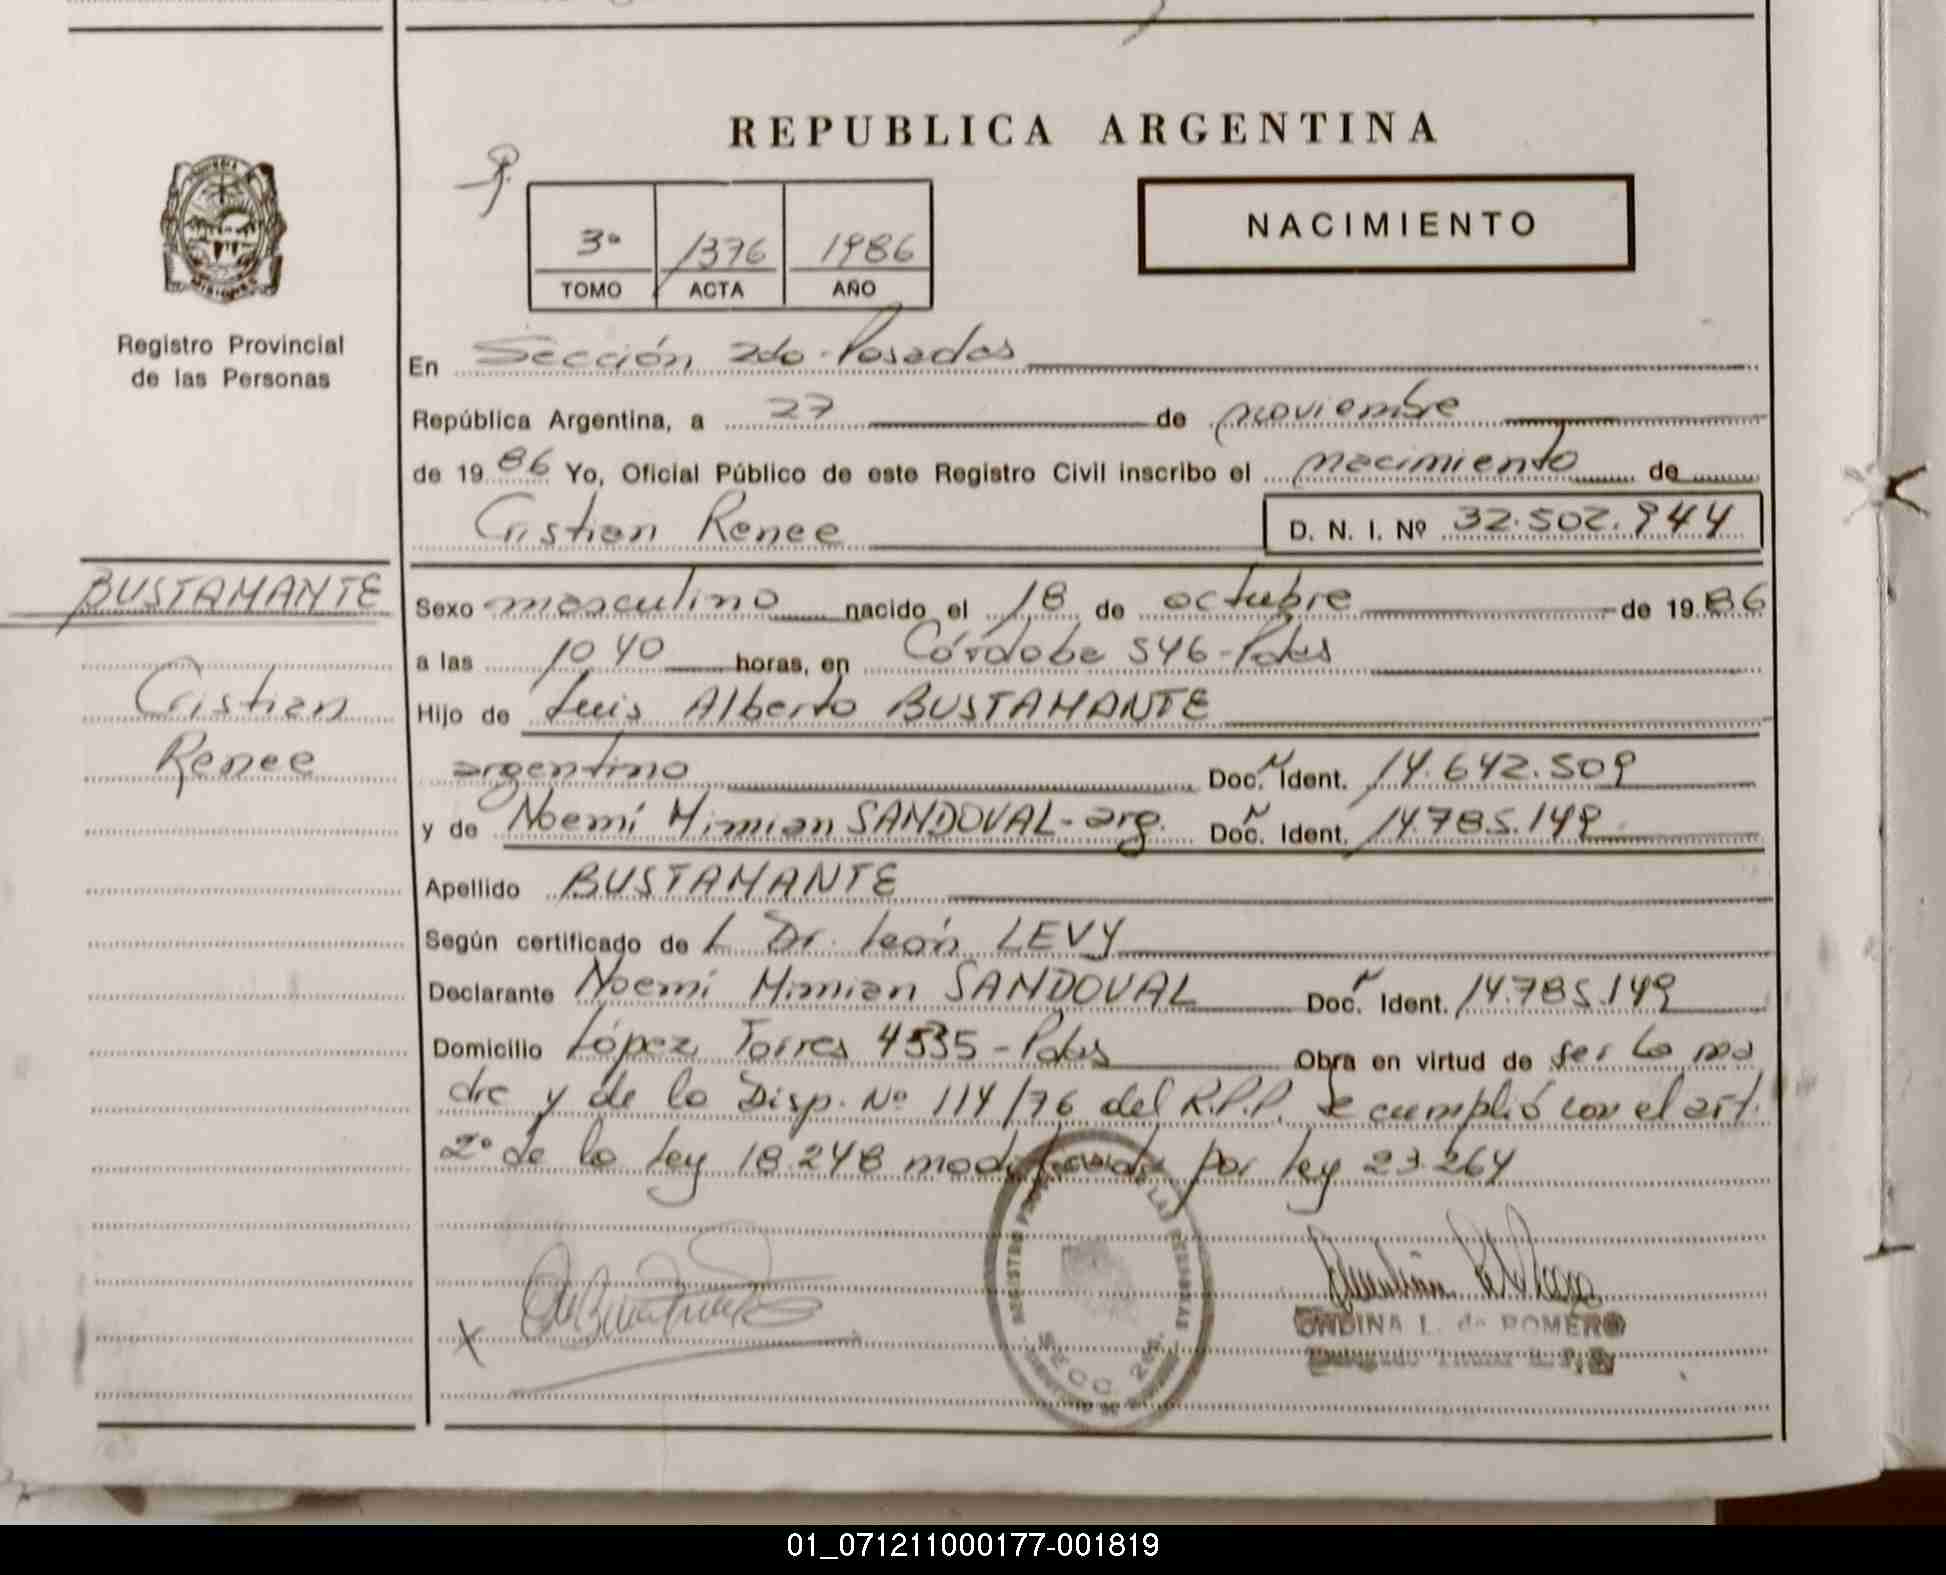 REPUBLICA ARGENTINA
NACIMIENTO
3º 1376 1986
TOMO ACTA AÑO
Registro Provincial
de las Personas
En Sección 2do - Posadas
República Argentina, a 27 de noviembre
de 1986 Yo, Oficial Público de este Registro Civil inscribo el nacimiento de
Cristian Renee D. N. I. Nº 32.502.944
BUSTAMANTE
Cristian
Renee
Sexo masculino nacido el 18 de octubre de 1986
a las 10 40 horas, en Córdoba 546 - Pdas
Hijo de Luis Alberto BUSTAMANTE
argentino Doc. Ident. 14.642.509
y de Noemí Mirian SANDOVAL - arg. Doc. Ident. 14.785.149
Apellido BUSTAMANTE
Según certificado de L Dr. León LEVY
Declarante Noemí Mirian SANDOVAL Doc. Ident. 14.785.149
Domicilio López Torres 4535 - Pdas Obra en virtud de ser la ma
dre y de la Disp. Nº 114/76 del R.P.P. Se cumplió con el art.
2º de la ley 18.248 modificada por ley 23.264
REGISTRO PROVINCIAL DE LAS PERSONAS
SECC 2da.
ONDINA L. de ROMERO
Delegado Titular R. P. P.
01_071211000177-001819